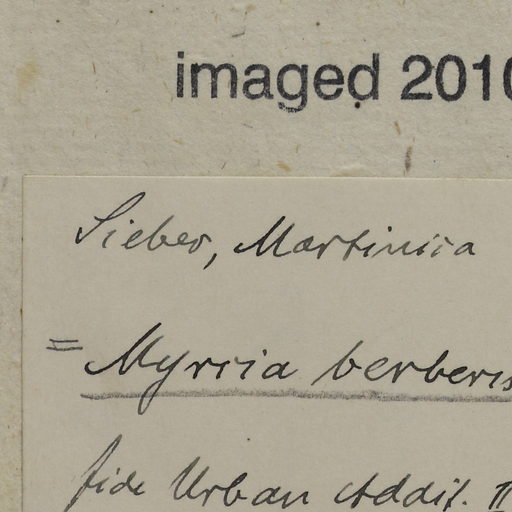 imaged 2010
Sieber, Martinica
= Myrcia berberis
fide Urban Addit. II